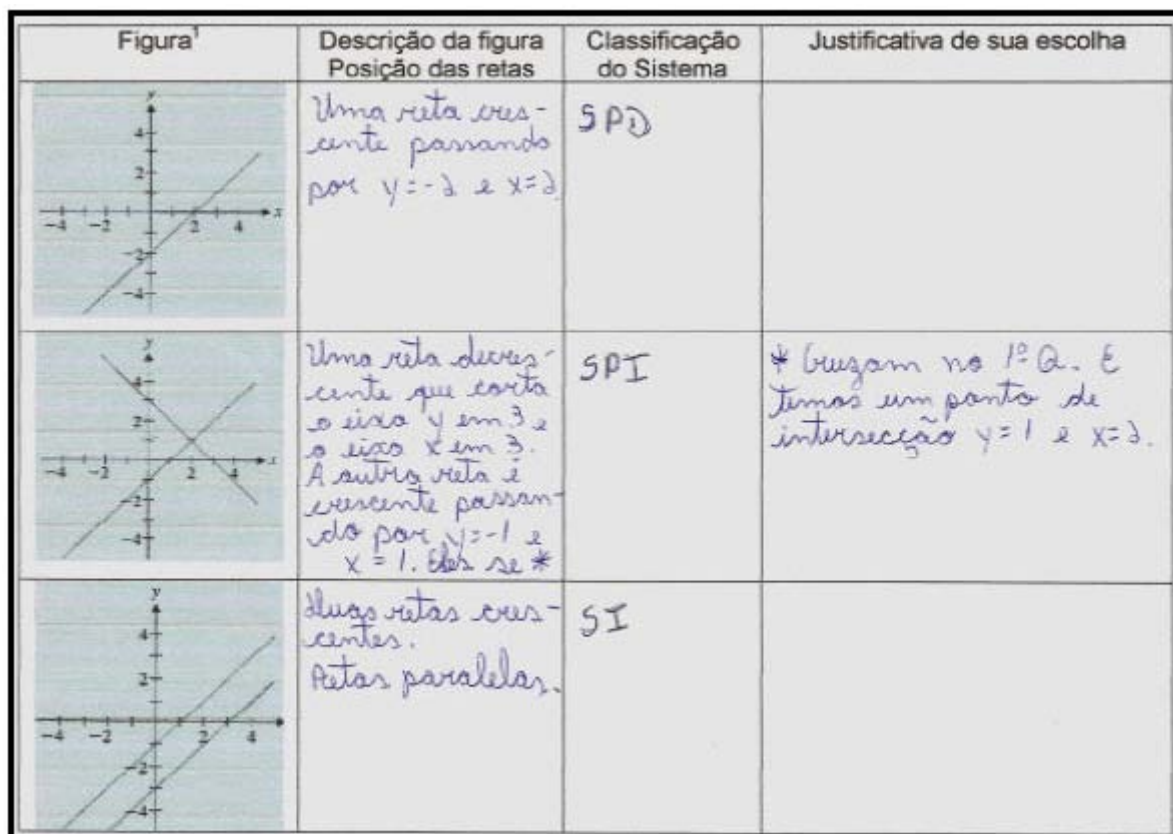 Figura¹
Descrição da figura
Posição das retas
Classificação
do Sistema
Justificativa de sua escolha
y
4
2
-4 -2 2 4 x
-2
-4
Uma reta cres-
cente passando
por y=-2 e x=2
SPD
y
4
2
-4 -2 2 4 x
-2
-4
Uma reta decres-
cente que corta
o eixo y em 3 e
o eixo x em 3.
A outra reta é
crescente passan-
do por y=-1 e
x = 1. Elas se *
SPI
* Cruzam no 1º Q. E
temos um ponto de
intersecção y=1 e x=2.
y
4
2
-4 -2 2 4
-2
-4
Duas retas cres-
centes.
Retas paralelas.
SI